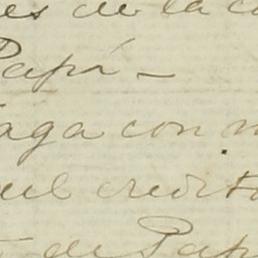 es de la c
Papá –
aga con
del credito
de Pap